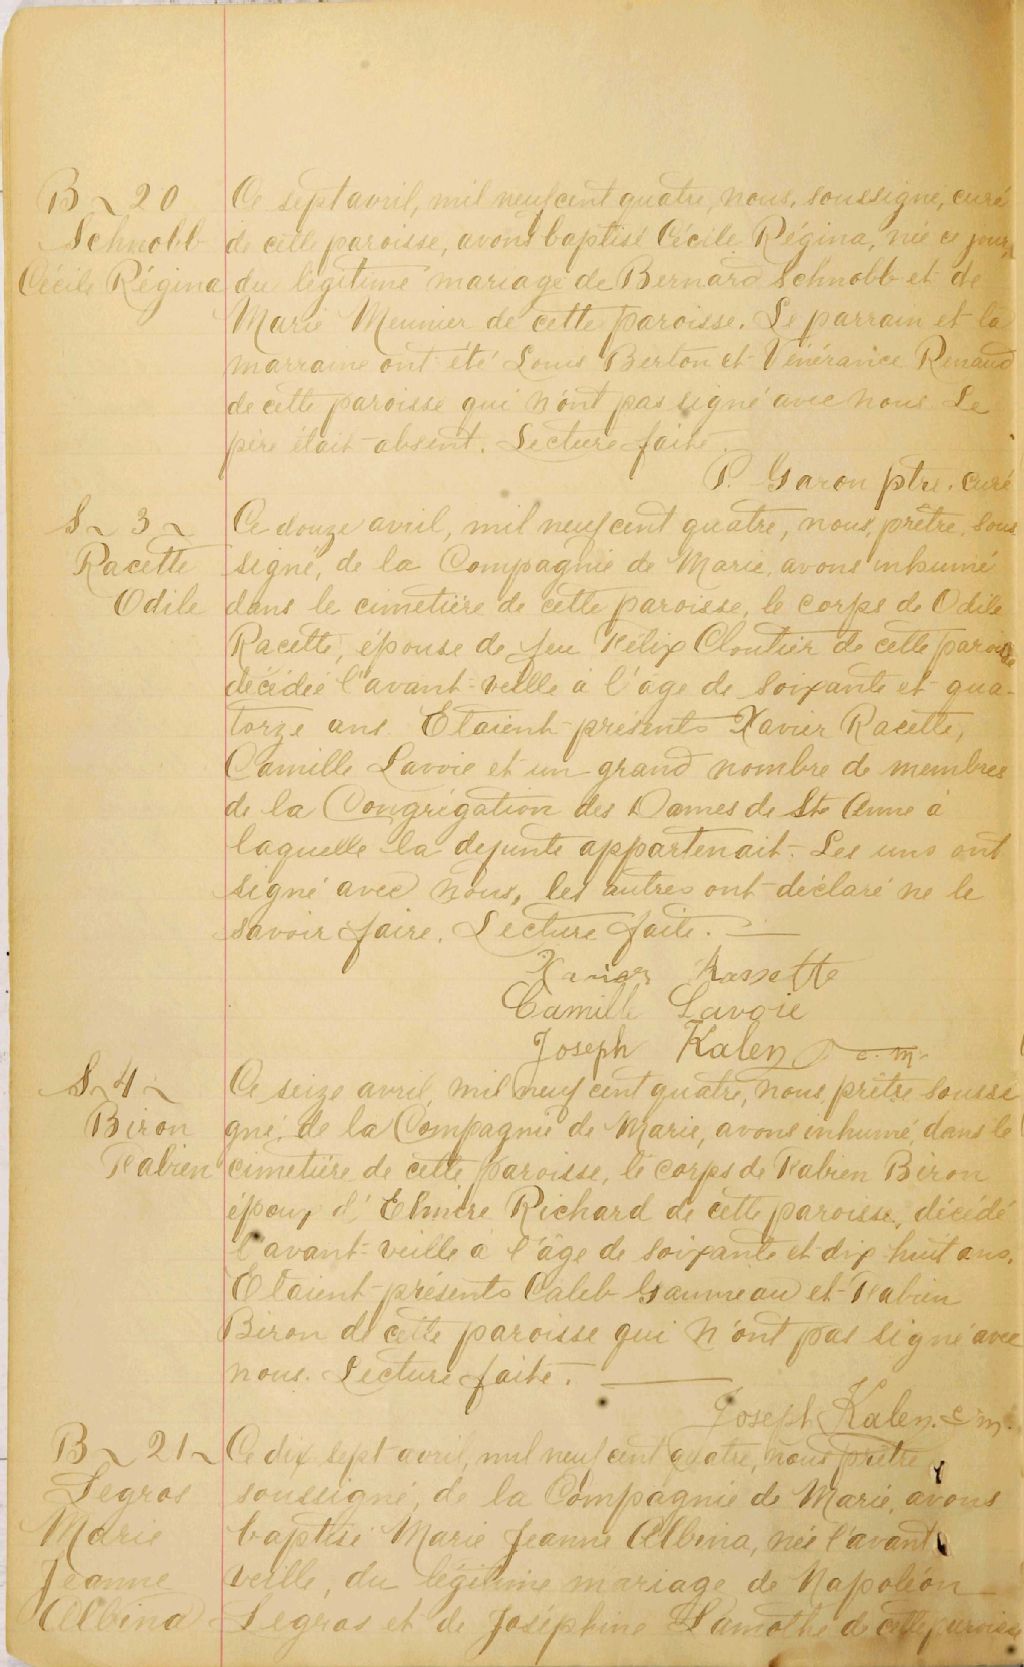 B~20
Schnobb
Cécile Régina
Ce sept avril, mil neuf cent quatre, nous, soussigné, curé
de cette paroisse, avons baptisé Cécile Régina, née ce jour,
du légitime mariage de Bernard Schnobb et de
Marie Meunier de cette paroisse. Le parrain et la
marraine ont été Louis Berton et Vénérance Renaud
de cette paroisse qui n'ont pas signé avec nous. Le
père était absent. Lecture faite.
P. Garon ptre. curé
S~3~
Racette
Odile
Ce douze avril, mil neuf cent quatre, nous, prêtre, sous
signé, de la Compagnie de Marie, avons inhumé
dans le cimetière de cette paroisse, le corps de Odile
Racette, épouse de feu Félix Cloutier de cette paroisse
décédée l'avant-veille à l'âge de soixante et qua-
torze ans. Etaient présents Xavier Racette,
Camille Lavoie et un grand nombre de membres
de la Congrégation des Dames de Ste Anne à
laquelle la defunte appartenait. Les uns ont
signé avec nous, les autres ont déclaré ne le
savoir faire. Lecture faite. —
Xavier Rassette
Camille Lavoie
Joseph Kalen c. m.
S~4~
Biron
Fabien
Ce seize avril, mil neuf cent quatre, nous, prêtre soussi
gné, de la Compagnie de Marie, avons inhumé, dans le
cimetière de cette paroisse, le corps de Fabien Biron
époux d'Elmire Richard de cette paroisse, décédé
l'avant-veille à l'âge de soixante et dix-huit ans.
Etaient présents Caleb Garneau et Fabien
Biron de cette paroisse qui n'ont pas signé avec
nous. Lecture faite. —
Joseph Kalen. c m.
B~21~
Legros
Marie
Jeanne
Albina
Ce dix sept avril, mil neuf cent quatre, nous prêtre
soussigné, de la Compagnie de Marie, avons
baptisé Marie Jeanne Albina, née l'avant
veille, du légitime mariage de Napoléon
Legros et de Joséphine Lamothe de cette paroisse